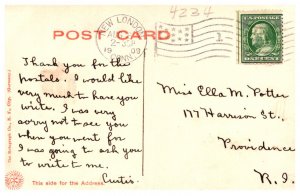 4234
POST CARD
NEW LONDON
2-PM
19 09
CONN.
1
U.S. POSTAGE
ONE CENT
Thank you for the
postals. I would like
very much to have you
write. I was very
sorry not to see you
when you went for
I was going to ask you
to write to me.
Curtis.
Miss Ella M. Potter
17 Harrison St.,
Providence
R.I.
This side for the Address.
The Rotograph Co., N. Y. City. (Germany.)